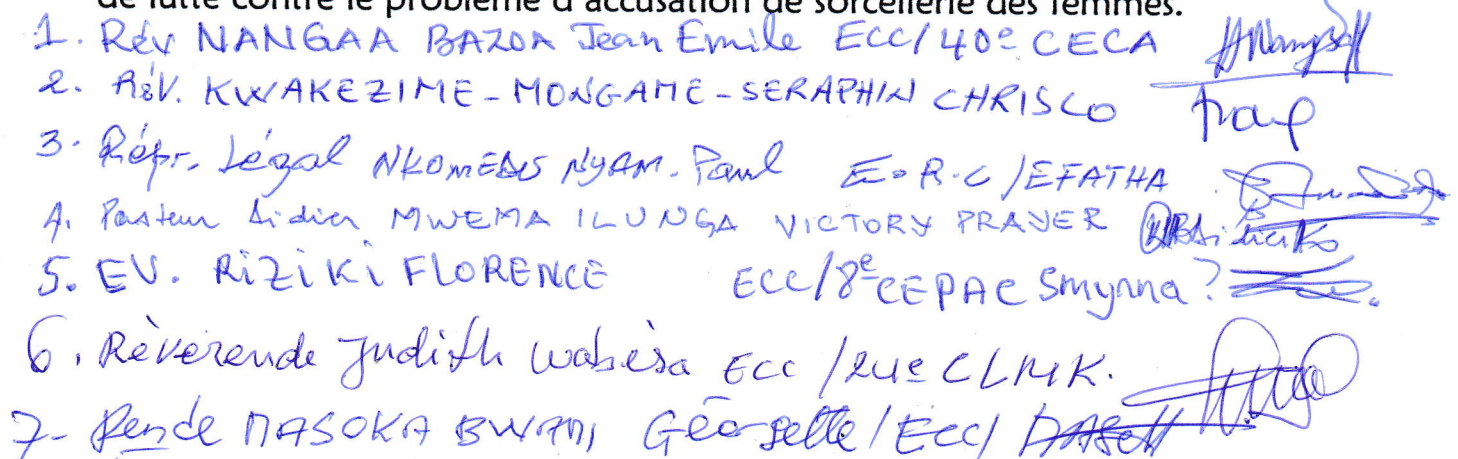 de lutte contre le problème d'accusation de sorcellerie des femmes.
1. Rév NANGAA BAZOA Jean Emile ECC/40e CECA
2. Rév. KWAKEZIME-MONGAME-SERAPHIN CHRISCO
3. Répr. Légal NYAM. Paul E.R.C/EFATHA
4. Pasteur Didier MWEMA ILUNGA VICTORY PRAYER
5. EV. RiZiKi FLORENCE ECC/8e CEPAC Smyrna?
6. Rèverende Judith Wabèsa ECC /24e CLMK.
7- MASOKA BWAMI Géorgette/ECC/